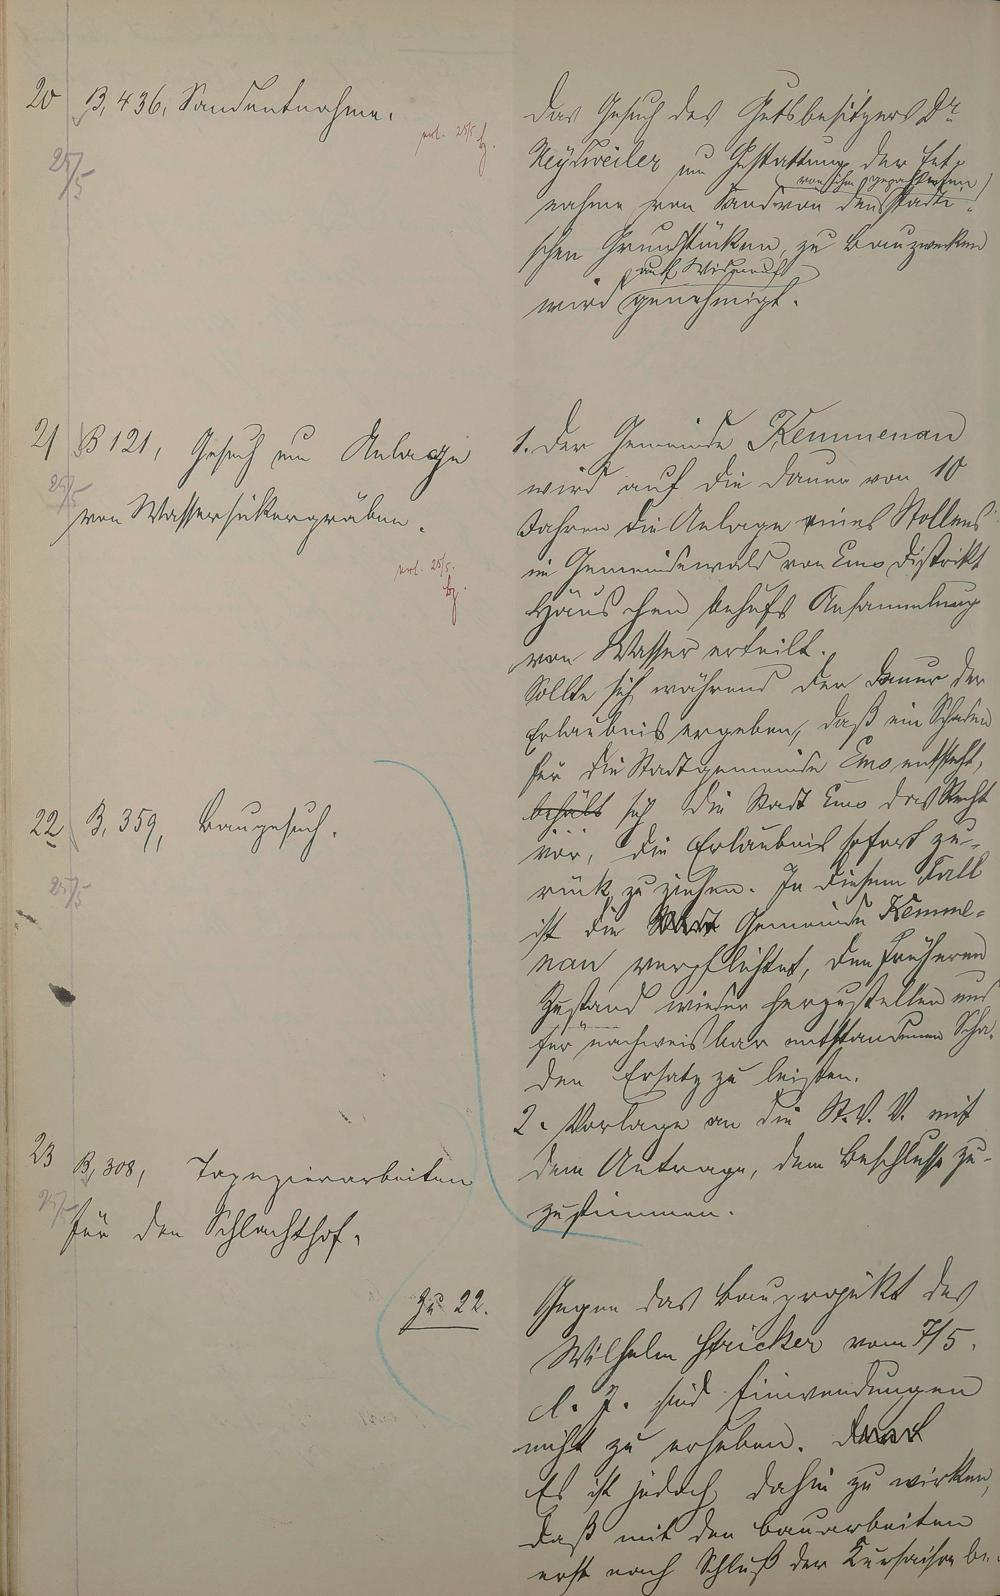 20 B, 436, Sandentnahme.
25/5
Das Gesuch des Gutsbesitzers Dr.
um Gestattung der Ent-
(von ihm gepachteten)
nahme von Sand von den städti-
schen Grundstücken zu Bauzwecken
auf Widerruf
wird genehmigt.
21 B 121, Gesuch um Anlage
25/5
von Wassersickergräben.
25/5.
1. Der Gemeinde Kemmenau
wird auf die Dauer von 10
Jahren die Anlage eines Stollens
im Gemeindewald von Ems Distrikt
Häuschen behufs Ansammlung
von Wasser erteilt.
Sollte sich während der Dauer der
Erlaubnis ergeben, daß ein Schaden
für die Stadtgemeinde Ems entsteht,
behält sich die Stadt Ems das Recht
vor, die Erlaubnis sofort zu-
rück zu ziehen. In diesem Fall
ist die Gemeinde Kemme-
nau verpflichtet, den früheren
Zustand wieder herzustellen und
für nachweisbar entstandenen Scha-
den Ersatz zu leisten.
2. Vorlage an die St. V. V. mit
dem Antrage, dem Beschlusse zu-
zustimmen.
22 B, 359, Baugesuch.
25/5
23 B, 308, Tapezierarbeiten
25/5
für den Schlachthof.
Zu 22.
Gegen das Bauprojekt des
Wilhelm Stricker vom 7/5.
l. J. sind Einwendungen
nicht zu erheben.
Es ist jedoch dahin zu wirken,
daß mit den Bauarbeiten
erst nach Schluß der Kursaison be-